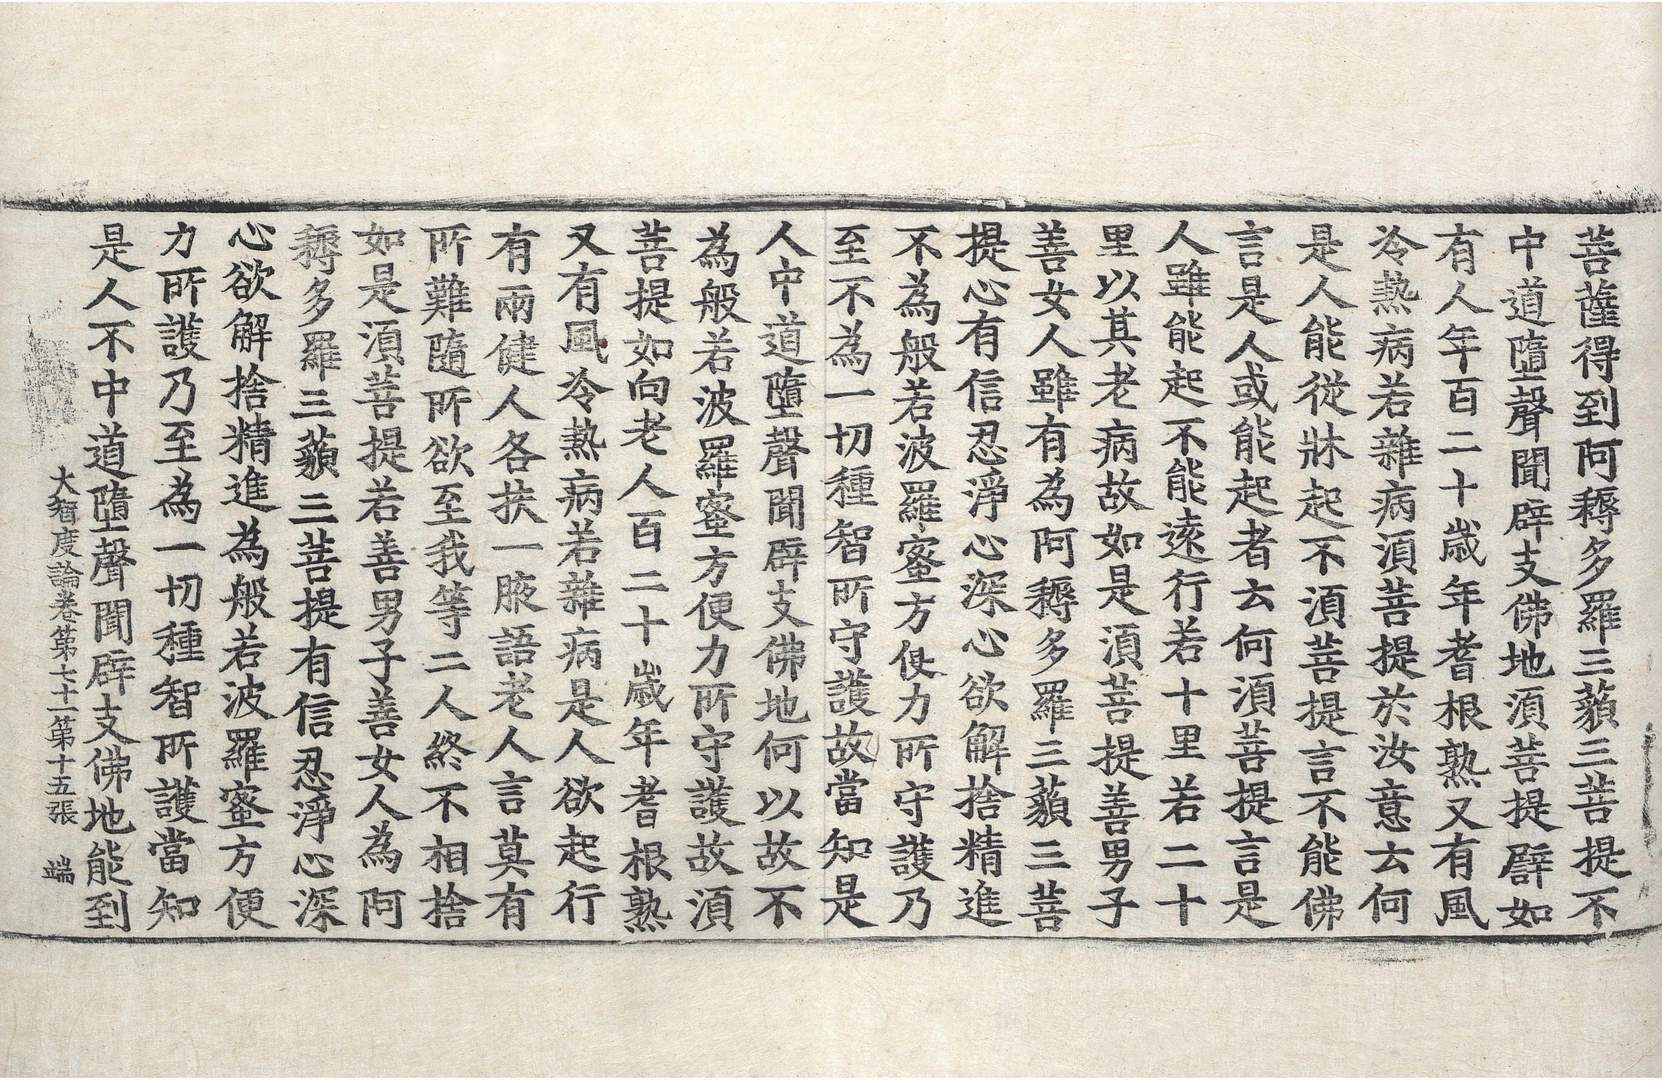 菩薩得到阿耨多羅三藐三菩提不
中道墮聲聞辟支佛地須菩提譬如
有人年百二十歲年耆根熟又有風
冷熱病若雜病須菩提於汝意云何
是人能從牀起不須菩提言不能佛
言是人或能起者云何須菩提言是
人雖能起不能遠行若十里若二十
里以其老病故如是須菩提善男子
善女人雖有為阿耨多羅三藐三菩
提心有信忍淨心深心欲解捨精進
不為般若波羅蜜方便力所守護乃
至不為一切種智所守護故當知是
人中道墮聲聞辟支佛地何以故不
為般若波羅蜜方便力所守護故須
菩提如向老人百二十歲年耆根熟
又有風冷熱病若雜病是人欲起行
有兩健人各扶一腋語老人言莫有
所難隨所欲至我等二人終不相捨
如是須菩提若善男子善女人為阿
耨多羅三藐三菩提有信忍淨心深
心欲解捨精進為般若波羅蜜方便
力所護乃至為一切種智所護當知
是人不中道墮聲聞辟支佛地能到
大智度論卷第七十一第十五張 端